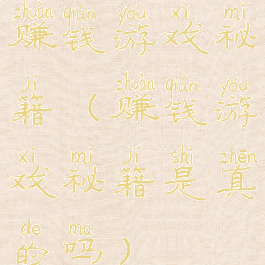 zhuàn qián yóu xì mì
赚钱游戏秘
jí zhuàn qián yóu
籍（赚钱游
xì mì jí shì zhēn
戏秘籍是真
de ma
的吗）